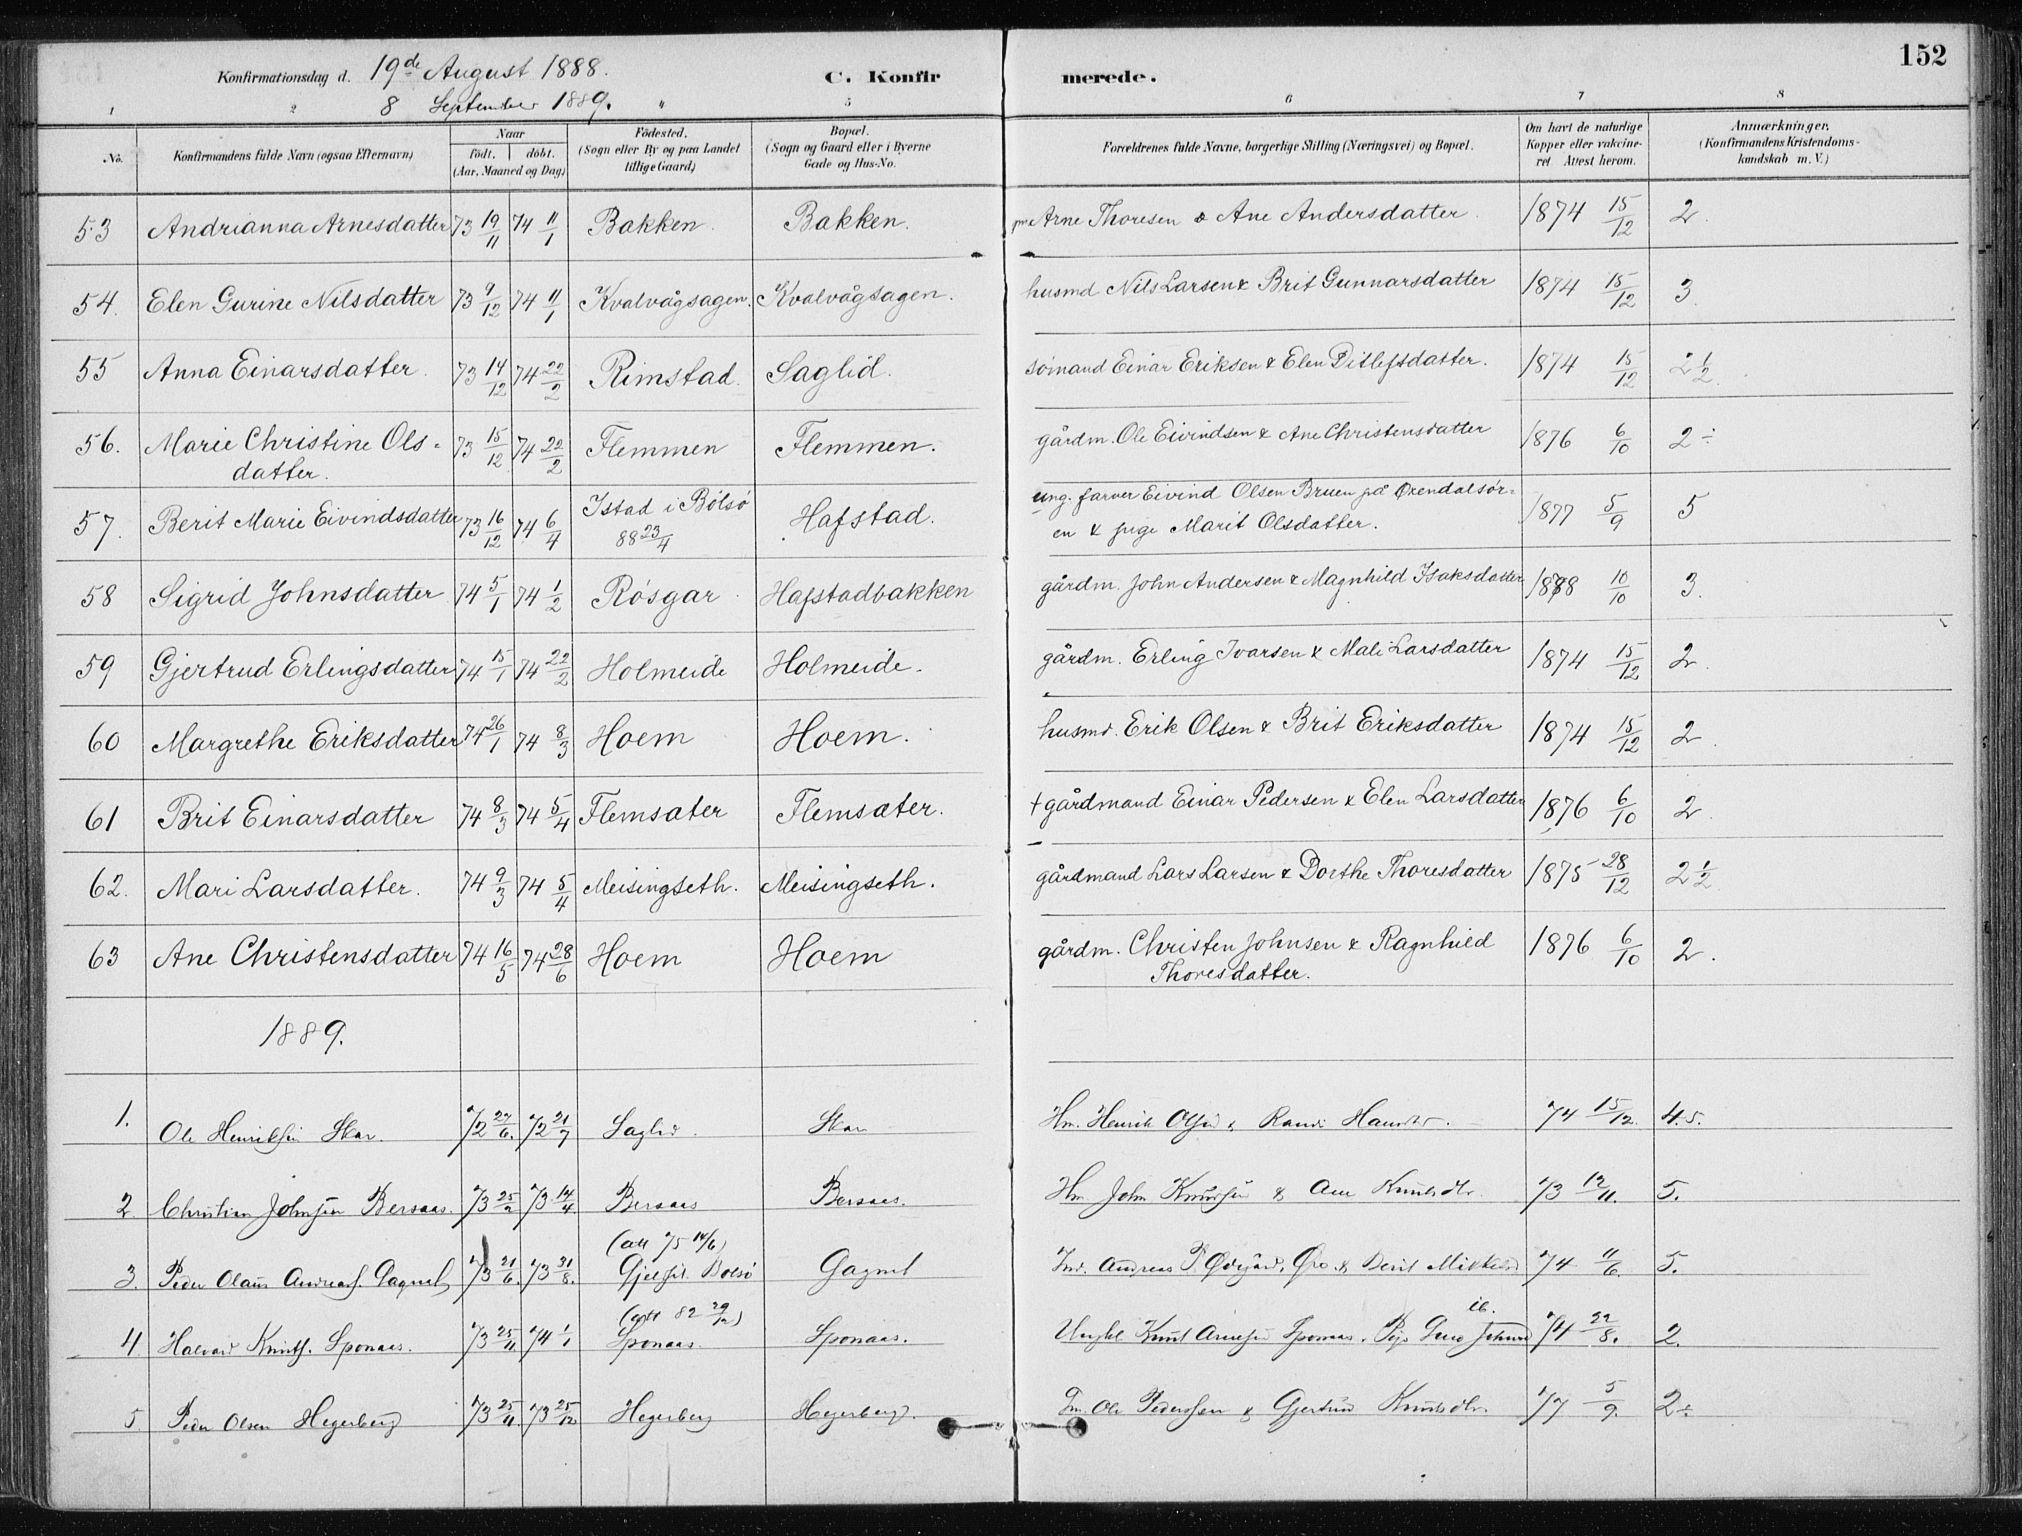 152
Konfirmationsdag d. 19de August 1888. C. Konfirmerede.
8 September 1889. "
1 2 5 6 7 8
No. Konfirmandens fulde Navn (ogsaa Efternavn) Naar født. døbt. (Aar, Maaned og Dag) Fødested. (Sogn eller By og paa Landet tillige Gaard) Bopæl. (Sogn og Gaard eller i Byerne Gade og Hus-No. Forældrenes fulde Navne, borgerlige Stilling (Næringsvei) og Bopæl. Om havt de naturlige Kopper eller vakcineret. Attest herom. Anmærkninger. (Konfirmandens Kristendomskundskab m. V.)
53 Andrianna Arnesdatter 73 19/11 74 11/1 Bakken. Bakken. Arne Thoresen & Ane Andersdatter. 1874 15/12 2.
54. Elen Gurine Nilsdatter 73 9/12 74 11/1 Kvalvågsagen. Kvalvågsagen. husmd Nils Larsen & Brit Gunnarsdatter 1874 15/12 3.
55 Anna Einarsdatter. 73 14/12 74 22/2 Rimstad. Saglid. sømand Einar Eriksen & Elen Ditlefsdatter. 1874 15/12 2 1/2.
56. Marie Christine Ols-
datter. 73 15/12 74 22/2 Flemmen Flemmen. gårdm. Ole Eivindsen & Ane Christensdatter 1876 6/10 2÷
57. Berit Marie Eivindsdatter 73 16/12 74 6/4 Istad i Bølsø Hafstad. ung. farver Eivind Olsen Bruen på Øxendalsør-
88 23/4 en & pige Marit Olsdatter. 1877 5/9 5
58 Sigrid Johnsdatter 74 5/1 74 1/2 Røsgar Hafstadbakken gårdm. John Andersen & Magnhild Isaksdatter 1878 10/10 3.
59 Gjertrud Erlingsdatter 74 15/1 74 22/2 Holmeide Holmeide. gårdm. Erling Ivarsen & Mali Larsdatter 1874 15/12 2.
60 Margrethe Eriksdatter 74 26/1 74 8/3 Hoem Hoem. husmd. Erik Olsen & Brit Eriksdatter 1874 15/12 2.
61 Brit Einarsdatter 74 8/3 74 5/4 Flemsæter Flemsæter. † gårdmand Einar Pedersen & Elen Larsdatter 1876 6/10 2.
62. Mari Larsdatter. 74 9/3 74 5/4 Meisingseth. Meisingseth. gårdmand Lars Larsen & Dorthe Thoresdatter 1875 28/12 2 1/2.
63 Ane Christensdatter 74 16/5 74 28/6 Hoem Hoem gårdm. Christen Johnsen & Ragnhild
Thoresdatter. 1876 6/10 2.
1889.
1. Ole Henriksen Skar. 72 27/6. 72 21/7 Saglid. Skar Hm. Henrik Olsen & Randi 74 15/12. 4.5.
2. Christian Johnsen Bersaas. 73 25/2 73 14/4 Bersaas Bersaas. Hm. John Knudsen & Ane Knudsdtr. 73 12/11. 5.
(att 75 14/6)
3. Peder Olaus 73 21/6. 73 31/8. Bolsø Andreas & Berit 74 11/6. 5.
(att 82 29/12)
4. Halvard Knuts. Sponaas. 73 25/11. 74 1/1 Sponaas. Sponaas. Ungkl Knut Arnesen Sponaas. Pige 74 22/8. 2.
ib.
5. Peder Olsen Hegerberg 73 25/11. 73 25/12 Hegerberg Hegerberg. Gm. Ole Pedersen & Gjertrud Knudsdtr. 77 5/9. 2÷